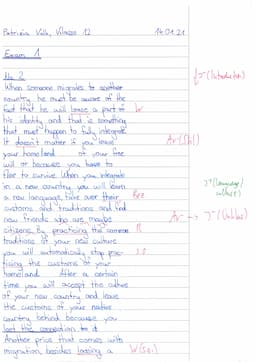 Patrizia Volk, Vilmess 12 14.01.21
Exam 1
No. 2
When someone migrates to another
country he must be aware of the
fact that he will loose a part of W
his identity and that is something
that must happen to fully integrate.
It doesn't matter if you leave
your homeland of your free
will or because you have to
flee to survive. When you integrate
in a new country you will learn
a new language, take over their
customs and traditions and find
new friends who are maybe
citizens. By practicing the common R
traditions of your new culture
you will automatically stop prac-
ticing the customs of your
homeland. After a certain
time you will accept the culture
of your new country and leave
the customs of your native
country behind because you
lost the connection to it.
Another price that comes with
migration, besides loosing a
(Introduction)